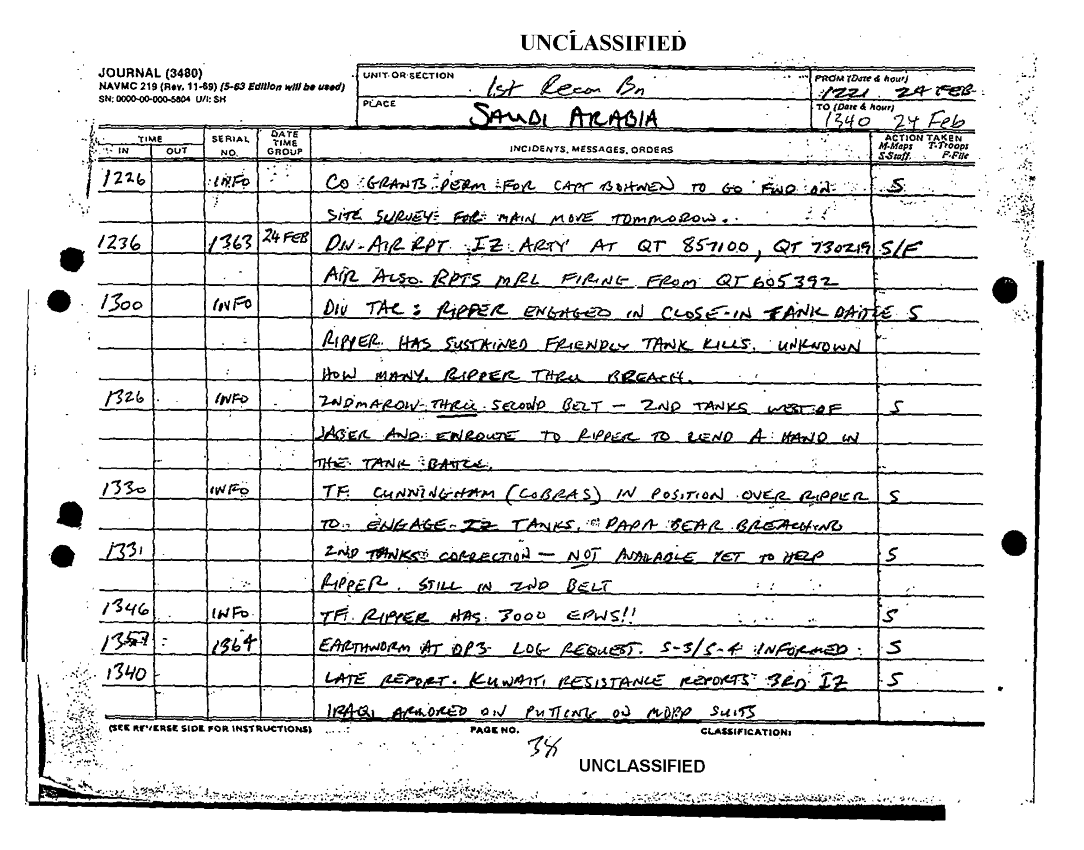 UNCLASSIFIED
JOURNAL (3480)
NAVMC 219 (Rev. 11-69) (5-63 Edition will be used)
SN: 0000-00-000-5804 U/I: SH
UNIT OR SECTION
1st Recon Bn
PLACE
SAUDI ARABIA
FROM (Date & hour)
1221 24 FEB
TO (Date & hour)
1340 24 Feb
TIME
IN OUT
SERIAL NO.
DATE TIME GROUP
INCIDENTS, MESSAGES, ORDERS
ACTION TAKEN
M-Maps T-Troops
S-Staff P-File
1226 INFO CO GRANTS PERM FOR CAPT BOHNEN TO GO FWD ON S
SITE SURVEY FOR MAIN MOVE TOMMOROW.
1236 1363 24 FEB DN-AIR RPT IZ ARTY AT QT 857100, QT 730219 S/F
AIR ALSO RPTS MRL FIRING FROM QT 605392
1300 INFO DIV TAC: RIPPER ENGAGED IN CLOSE-IN TANK S
RIPPER HAS SUSTAINED FRIENDLY TANK KILLS. UNKNOWN
HOW MANY. RIPPER THRU BREACH.
1326 INFO THRU SECOND BELT - 2ND TANKS WEST OF S
JABER AND ENROUTE TO RIPPER TO LEND A HAND IN
THE TANK
1330 INFO TF CUNNINGHAM (COBRAS) IN POSITION OVER RIPPER S
TO ENGAGE IZ TANKS. PAPA BEAR BREACHING
1331 2ND TANKS CORRECTION - NOT AVAILABLE YET TO HELP S
RIPPER. STILL IN 2ND BELT
1346 INFO TF RIPPER HAS 3000 EPWS!! S
1364 EARTHWORM AT OP3 LOG REQUEST. S-3/S-4 INFORMED. S
1340 LATE REPORT. KUWAITI RESISTANCE REPORTS 3RD IZ S
IRAQI ARMORED DIV PUTTING ON MOPP SUITS
(SEE REVERSE SIDE FOR INSTRUCTIONS) PAGE NO. CLASSIFICATION:
UNCLASSIFIED